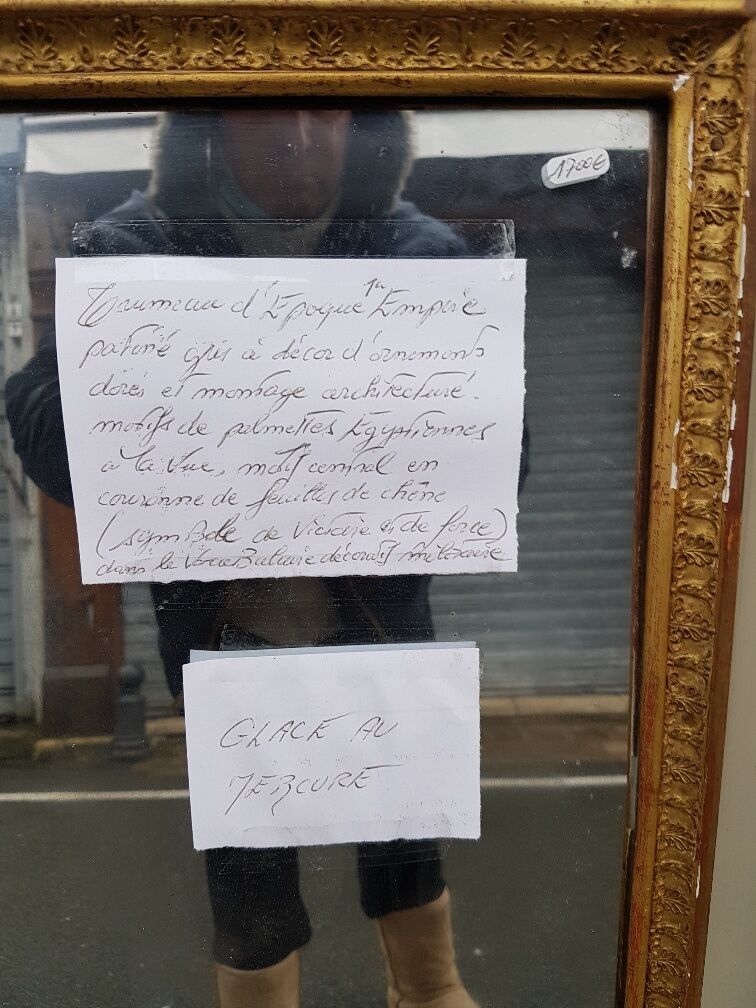 1700€
Trumeau d'Epoque 1er Empire
patiné gris à décor d'ornements
dorés et montage architecturé.
motifs de palmettes Egyptiennes
à la Vue, motif central en
couronne de feuilles de chêne
(symbole de Victoire et de force)
dans le Vocabulaire décoratif militaire
GLACE AU
MERCURE